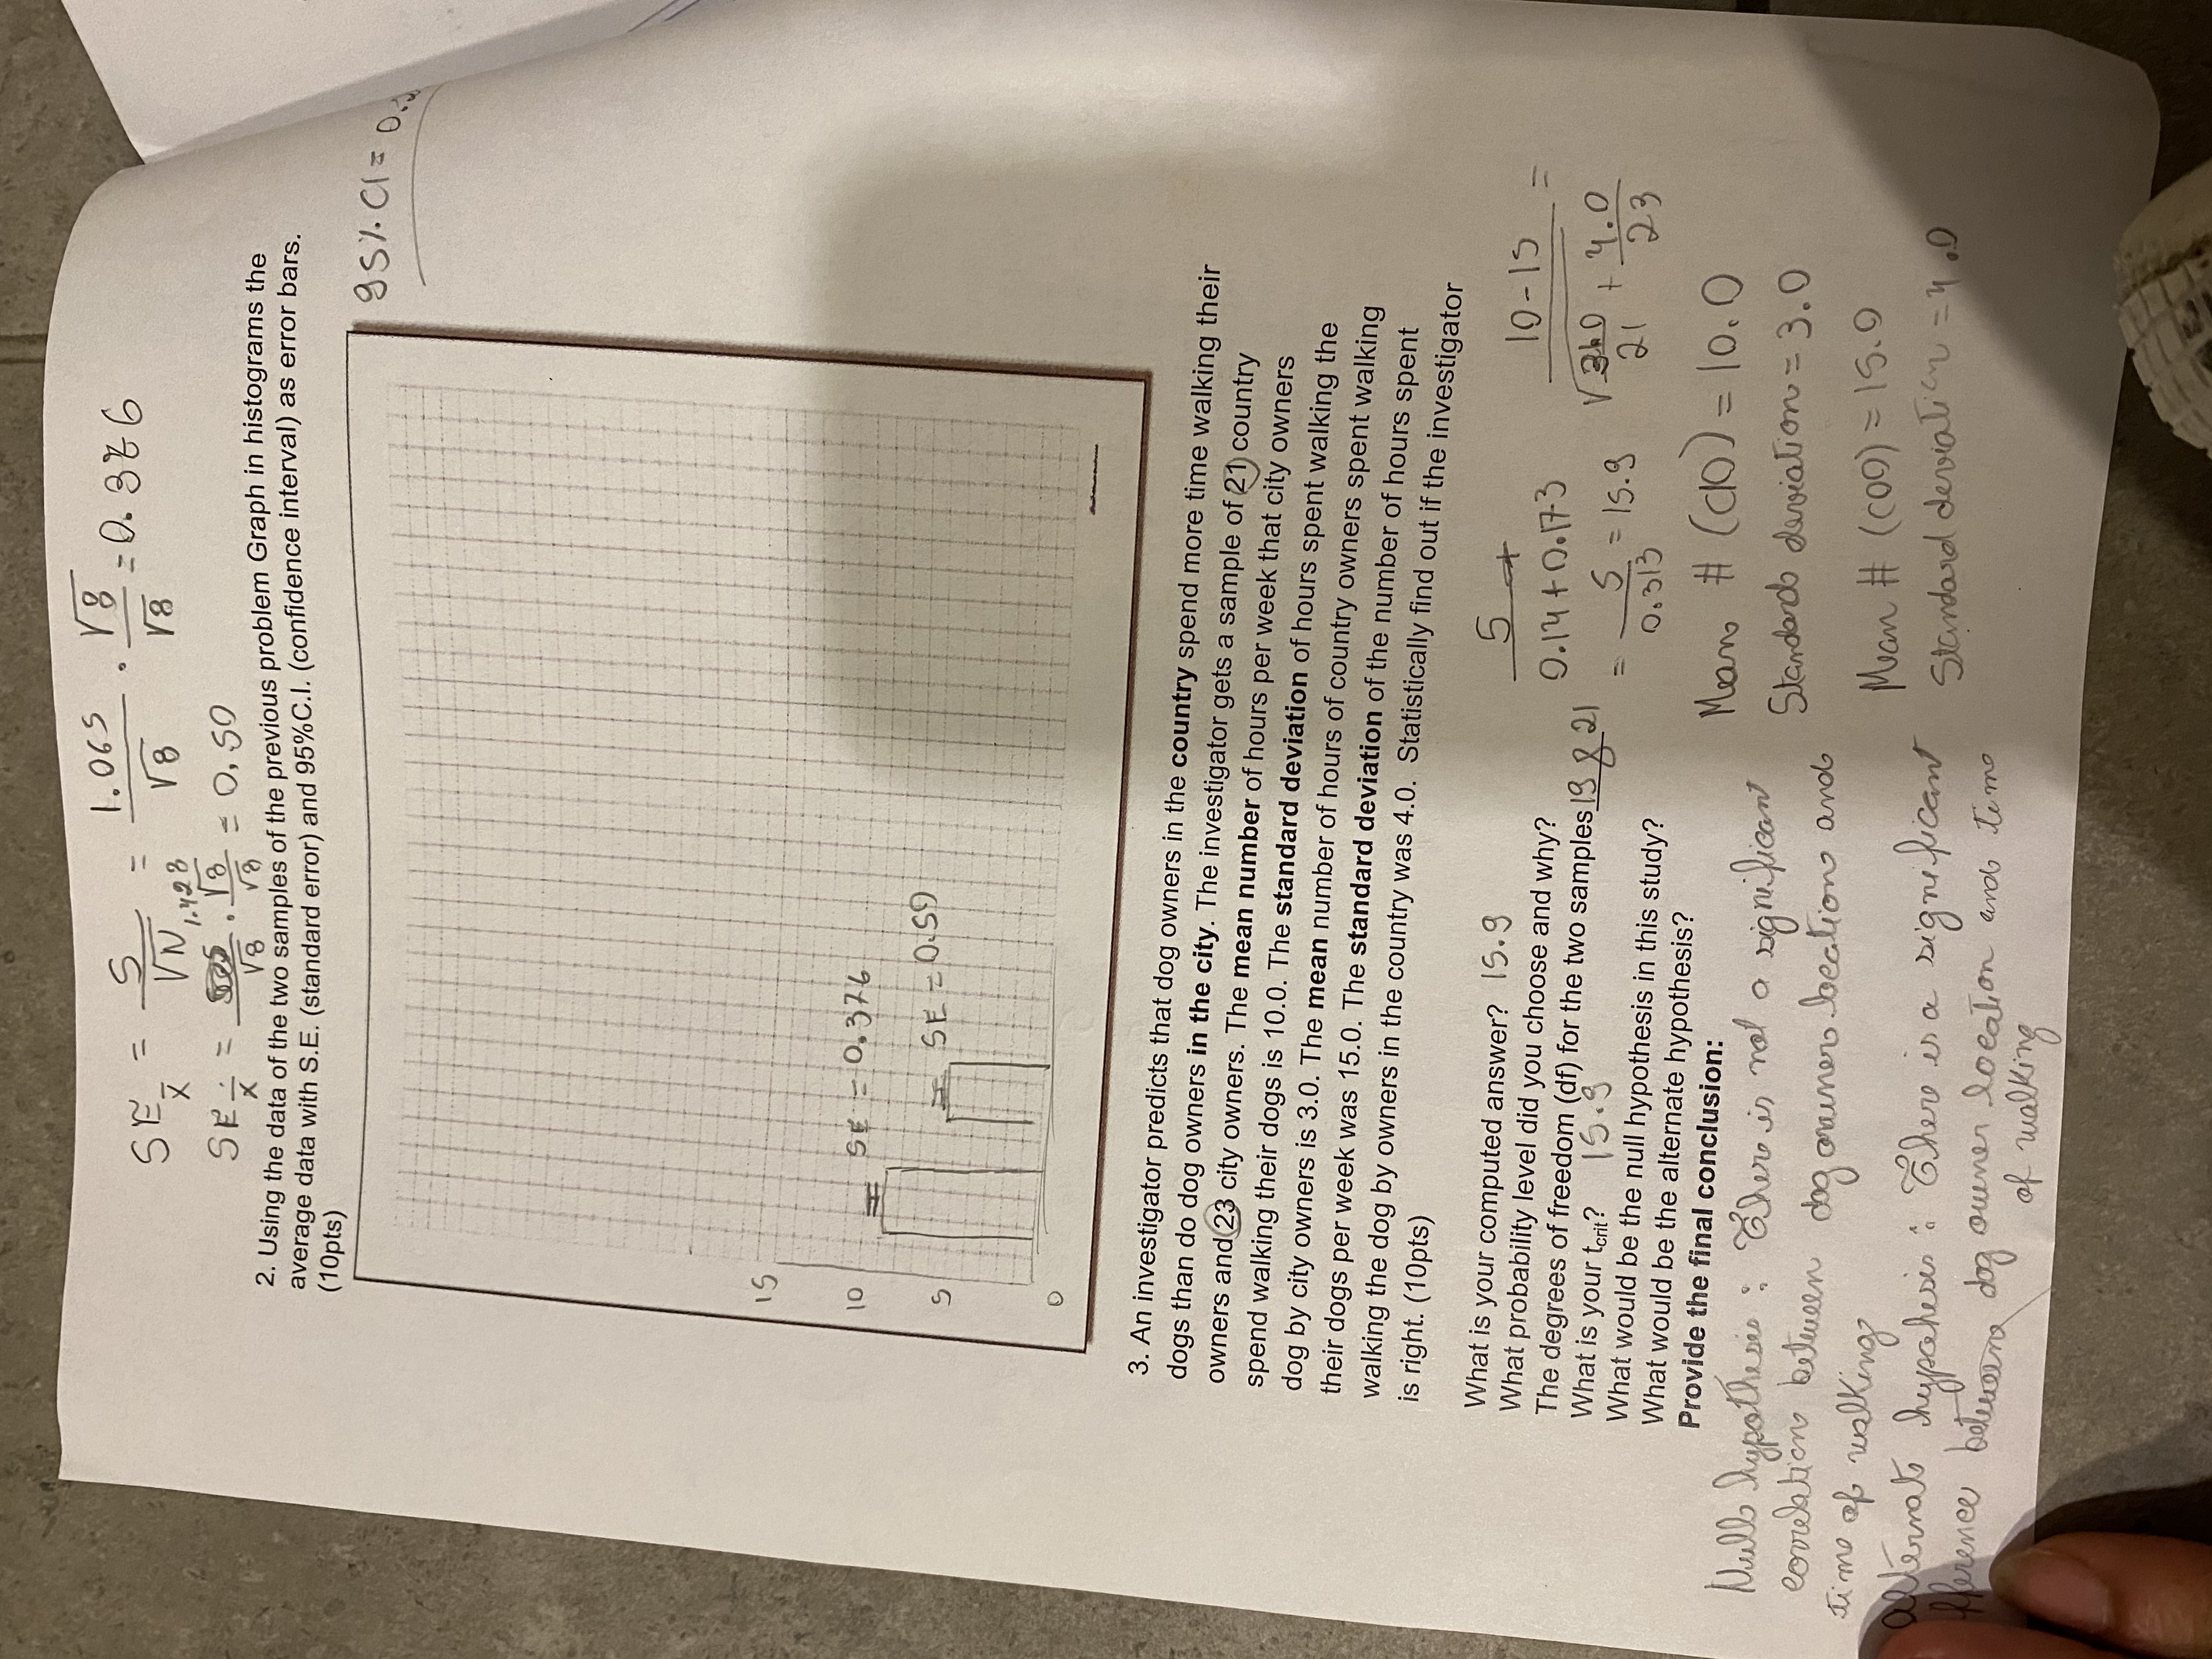 SE x̄ = S / √N = 1.065 / √8 · √8 / √8 = 0.376
SE x̄ = 1.428 / √8 · √8 / √8 = 0,50
2. Using the data of the two samples of the previous problem Graph in histograms the
average data with S.E. (standard error) and 95%C.I. (confidence interval) as error bars.
(10pts)
95% CI = 0.
15
10
5
0
SE = 0.376
SE = 0.50
3. An investigator predicts that dog owners in the country spend more time walking their
dogs than do dog owners in the city. The investigator gets a sample of 21 country
owners and 23 city owners. The mean number of hours per week that city owners
spend walking their dogs is 10.0. The standard deviation of hours spent walking the
dog by city owners is 3.0. The mean number of hours of country owners spent walking
their dogs per week was 15.0. The standard deviation of the number of hours spent
walking the dog by owners in the country was 4.0. Statistically find out if the investigator
is right. (10pts)
What is your computed answer? 15.9
What probability level did you choose and why?
The degrees of freedom (df) for the two samples 19 & 21
What is your tcrit? 15.9
What would be the null hypothesis in this study?
What would be the alternate hypothesis?
Provide the final conclusion:
5 / 0.14 + 0.173
= 5 / 0.313 = 15.9
10-15 / √ 3.0 / 21 + 4.0 / 23 =
Mean # (CIO) = 10.0
Standard deviation = 3.0
Mean # (COO) = 15.0
Standard deviation = 4.0
Null hypothesis : There is not a significant
correlation between dog owners locations and
time of walking
Alternate hypothesis : There is a significant
between dog owner location and time
of walking